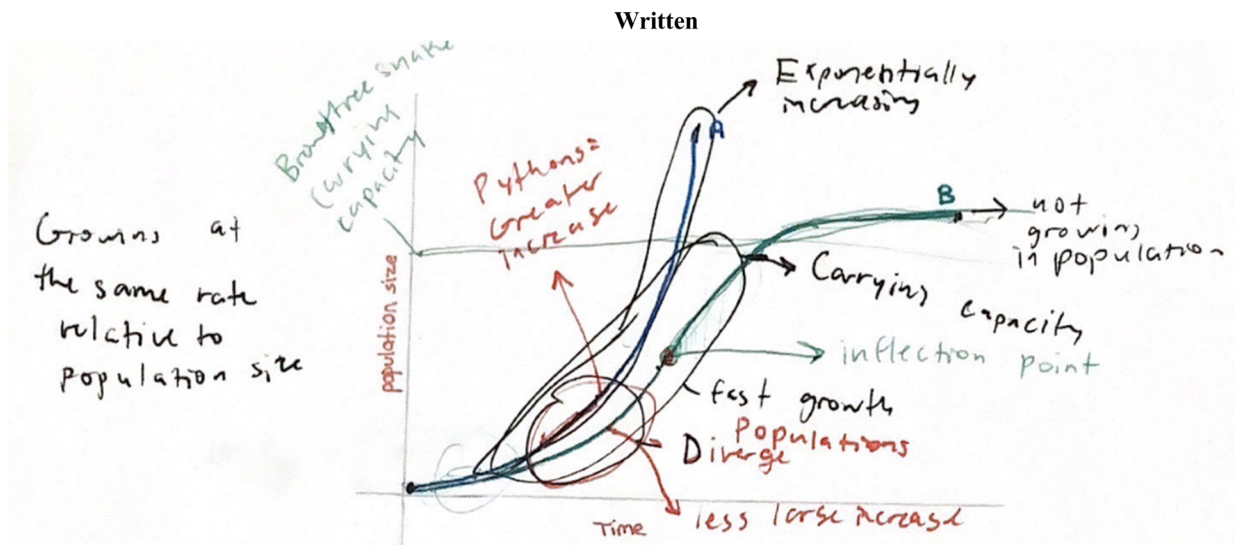 Written
Brown tree snake
carrying
capacity
Exponentially
increasing
A
Pythons =
Greater
increase
B
not
growing
in population
Growing at
the same rate
relative to
population size
population size
Carrying
capacity
inflection point
fast growth
Populations
Diverge
less large increase
Time